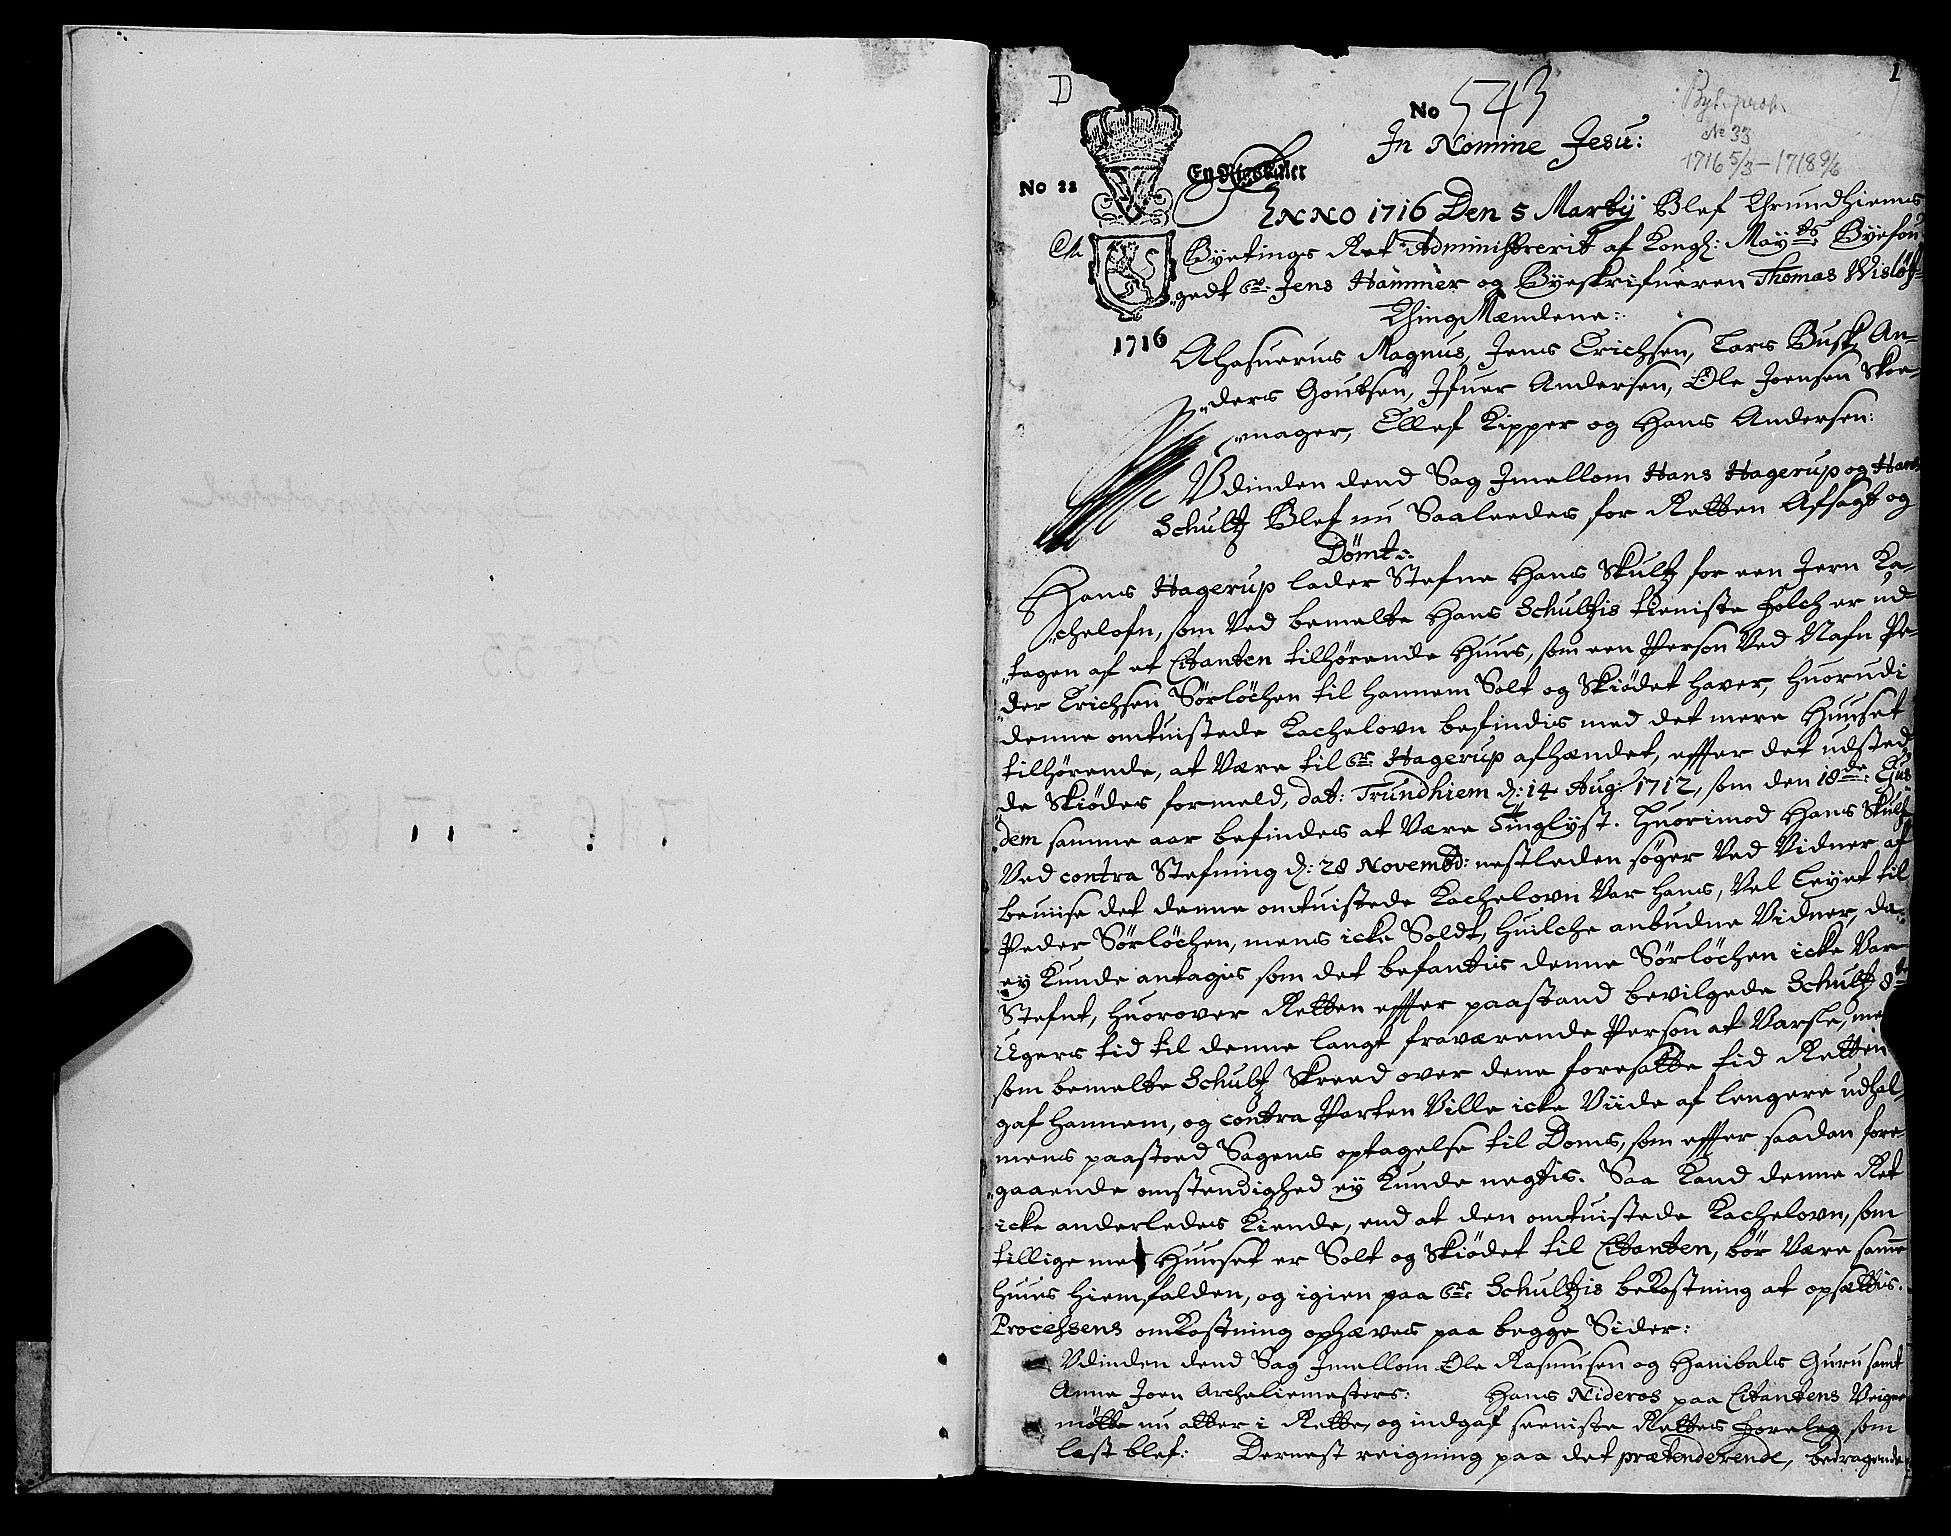 D
1
No 543
Bytingsprot.
No 33
1716 5/3 – 1718 9/6
In Nomine Jesu:
No 22
En Rixdaler
1716
ANNO 1716 Den 5 Martij Blef Thrundhiems
Byetings Ret Administrerit af Kongl: Mayts Byefou-
gedt Sr: Jens Hammer og Byeskrifueren Thomas Wisløff
Thing Mændene:
Ahasuerus Magnus, Jens Erichsen, Lars Busk, An-
ders Goutsen, Ifuer Andersen, Ole Joensen Skoe-
mager, Ellef Kipper og Hans Andersen:
Udinden dend Sag Imellom Hans Hagerup og Hans
Schultz Blef nu Saaledes for Retten Afsagt og
Dømt:
Hans Hagerup lader Stefne Hans Skultz for een Jern Ka-
chelofn, som Ved bemelte Hans Schultzis tieniste folch er ud-
tagen af et Citanten tilhørende Huus, som een Person Ved Nafn Pe-
der Erichsen Sørløchen til hannem Solt og Skiødet haver, huorudi
denne omtuistede Kachelovn befindis med det mere Huuset
tilhørende, at Være til Sr: Hagerup afhændet, effter det udsted-
de Skiødes formeld, dat: Trundhiem d: 14 Aug: 1712, som den 18de: Ejus-
dem samme aar befindes at Være Tinglyst. Huorimod Hans Skultz
Ved contra Stefning d: 28 Novembr: nestleden søger Ved Vidner at
beviise det denne omtuistede Kachelovn Var hans, Vel Leyet til
Peder Sørløchen, mens icke Soldt, huilche anbudne Vidner, da
ey Kunde antagis som det befantis denne Sørløchen icke Var
Stefnt, huorover Retten effter paastand bevilgede Schultz 8te
Ugers tid til denne langt fraværende Person at Varsle, me
som bemelte Schultz Skreed over dene foresatte tid Retten
gaf hannem, og contra Parten Ville icke Viide af lengere udhal,
mens paastoed Sagens optagelse til Doms, som effter saadan fore-
gaaende omstendighed ey Kunde negtis. Saa Kand denne Ret
icke anderledes Kiende, end at den omtuistede Kachelovn, som
tillige med Huuset er Solt og Skiødet til Citanten, bør Være samme
huus hiemfalden, og igien paa Sr: Schultzis bekostning at opsættis.
Processens omkostning ophæves paa begge Sider:
Udinden dend Sag Imellom Ole Rasmusen og Hanibals Guru samt
Anne Joen Archeliemesters: Hans Nideros paa Citantens Veigne
møtte nu atter i Rette, og indgaf seeniste Rettes foreleg som
læst blef: Dernest reigning paa det prætenderende, bedragende